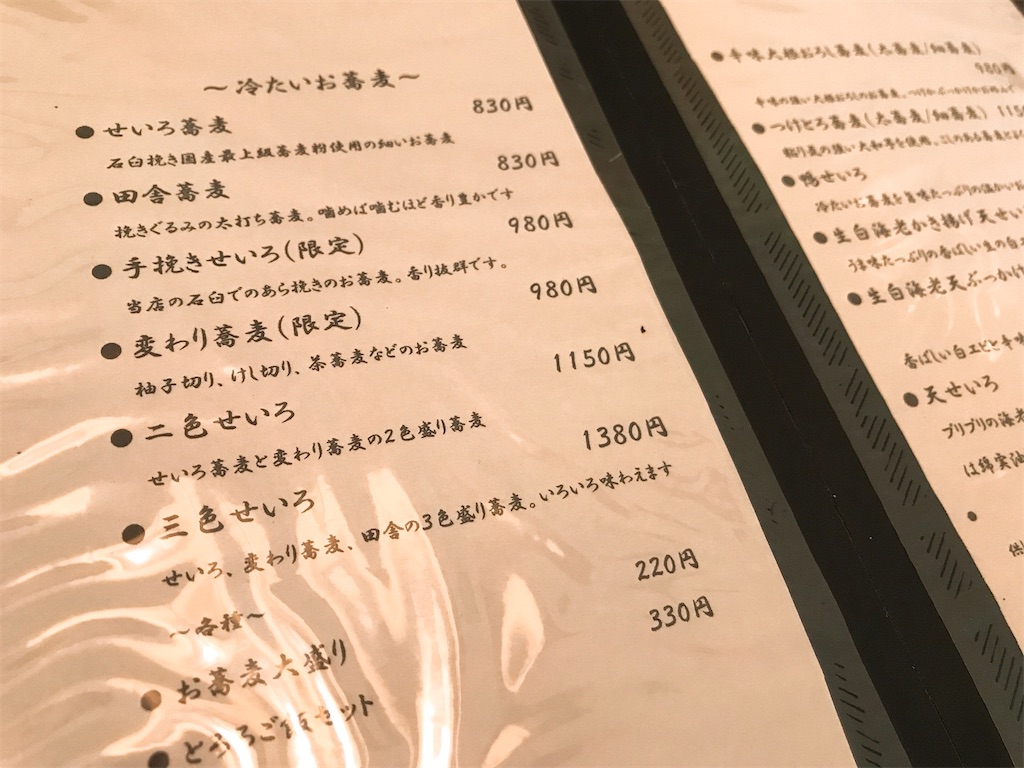 ～冷たいお蕎麦～
●せいろ蕎麦 830円
石臼挽き国産最上級蕎麦粉使用の細いお蕎麦
●田舎蕎麦 830円
挽きぐるみの太打ち蕎麦。噛めば噛むほど香り豊かです
●手挽きせいろ(限定) 980円
当店の石臼でのあら挽きのお蕎麦。香り抜群です。
●変わり蕎麦(限定) 980円
柚子切り、けし切り、茶蕎麦などのお蕎麦
●二色せいろ 1150円
せいろ蕎麦と変わり蕎麦の2色盛り蕎麦
●三色せいろ 1380円
せいろ、変わり蕎麦、田舎の3色盛り蕎麦。いろいろ味わえます
～各種～
●お蕎麦大盛り 220円
●とろろご飯セット 330円
●辛味大根おろし蕎麦(太蕎麦/細蕎麦)
980円
辛味の強い大根おろしのお蕎麦。
●つけとろ蕎麦(太蕎麦/細蕎麦) 115
粘り気の強い大和芋を使用。
●鴨せいろ
冷たいお蕎麦を旨味たっぷりの温かい
●生白海老かき揚げ天せい
うま味たっぷりの香ばしい生の白
●生白海老天ぶっかけ
香ばしい白エビと辛味
●天せいろ
プリプリの海老
は綿実油
●